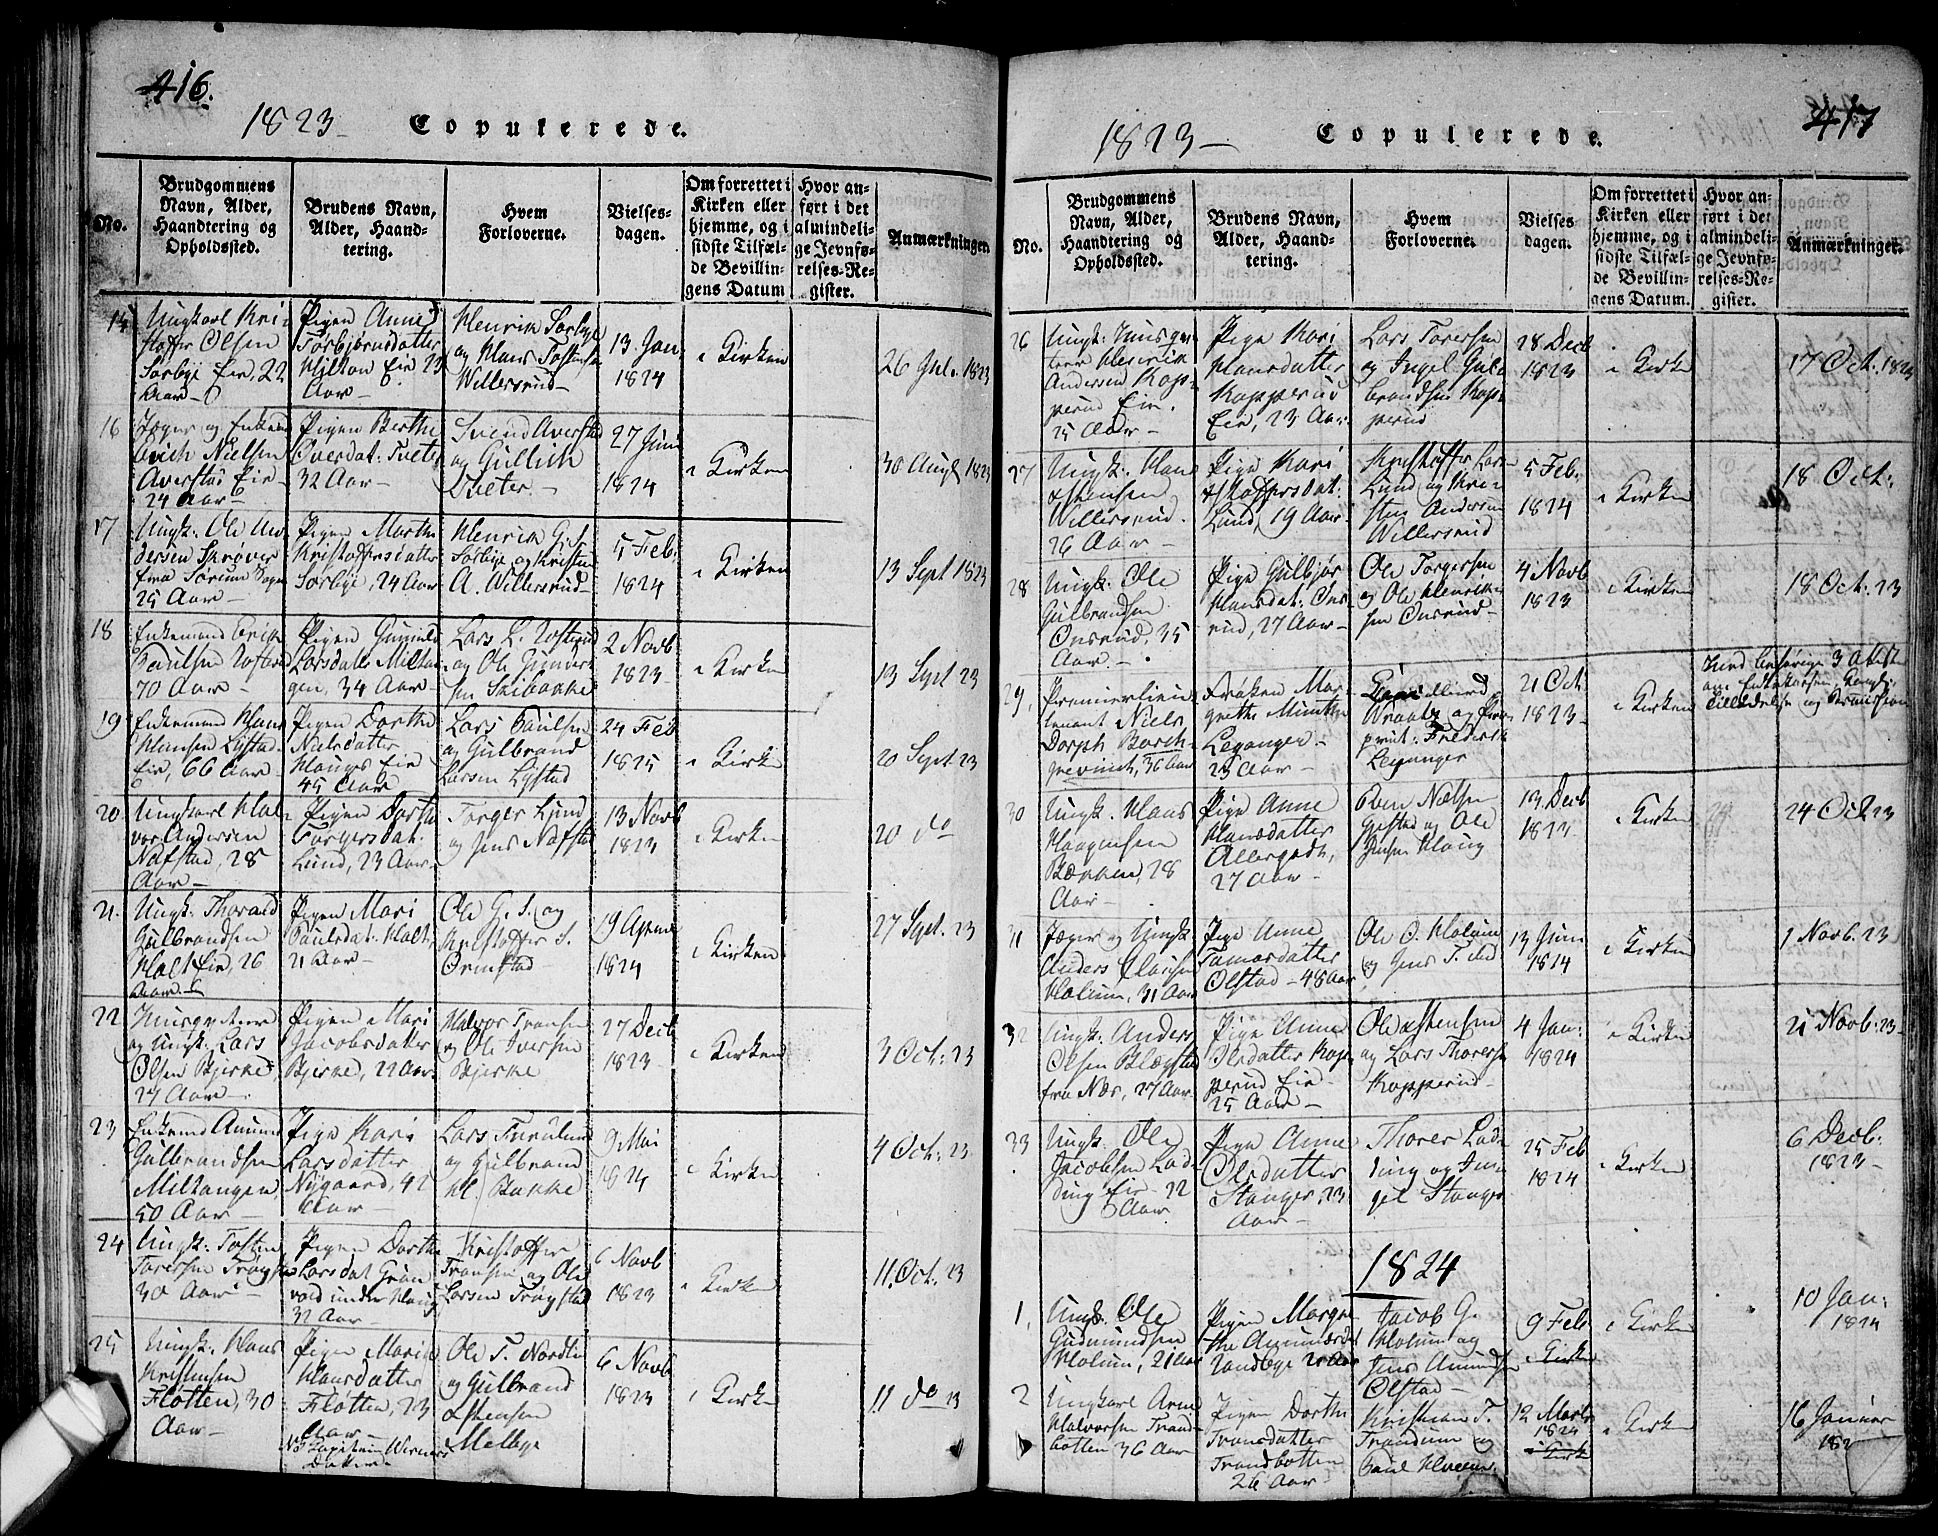 416.
1823 Copulerede.
No.
Brudgommens
Navn, Alder,
Haandtering og
Opholdssted.
Brudens Navn,
Alder, Haand-
tering.
Hvem
Forloverne.
Vielses-
dagen.
Om forrettet i
Kirken eller
hjemme, og i
sidste Tilfæl-
de Bevillin-
gens Datum
Hvor an-
ført i det
almindeli-
ge Jevnfø-
relses-Re-
gister.
Anmærkninger.
Ungkarl Kri-
stoffer Olsen
Sørbye Eie, 22
Aar
Pigen Anne
Torbjørnsdatter
Milton Eie 23
Aar
Henrik Sørbye
og Hans Tostensen
Willersrud
13 Jan
1824
i Kirken
26 Jul. 1823
16
Averstad Eie
24 Aar
Pigen Berthe
32 Aar
Svend Averstad
og Gullich
Tveter
27 Juni
1824
i Kirken
30 Aug 1823
17
Ungk: Ole An-
dersen
fra Sørum Sogn
25 Aar
Pigen Marthe
Kristoffersdatter
Sørbye, 24 Aar
Henrik G. S.
Sørbye og Kristen
A. Willersrud
5 Feb:
1824
i Kirken
13 Sept 1823
18
Enkemand Erik
Paulsen
70 Aar
Pigen Gunild
Larsdatter Miltan-
gen, 34 Aar
Lars L.
og Ole Gunder-
sen Skibakke
2 Novb
1823
i Kirken
13 Sept 23
19
Enkemand Hans
Hansen Lystad
Eie, 66 Aar
Pigen Dorthe
Nielsdatter
Hauger Eie
45 Aar
Lars Paulsen
og Gulbrand
Larsen Lystad
24 Feb
1825
i Kirken
20 Sept 23
20
Ungkarl Hal-
vor Andersen
Nafstad, 28
Aar
Pigen Dorthe
Torgersdat:
Lund, 23 Aar
Torger Lund
og Jens Nafstad
13 Novb
1823
i Kirken
20 do
21.
Ungk: Thorald
Gulbrandsen
Holt Eie, 26
Aar
Pigen Mari
Paulsdat: Holt,
21 Aar
Ole G. S. og
Kristoffer S.
Ormstad
19 April
1824
i Kirken
27 Sept. 23
22
og Ungk. Lars
Olsen Bjerke,
27 Aar
Pigen Mari
Jacobsdatter
Bjerke, 22 Aar
Halvor Fransen
og Ole Iversen
Bjerke
27 Decb
1823
i Kirken
3 Oct: 23
23
Enkemd Amund
Gulbrandsen
Miltangen,
50 Aar
Pige Kari
Larsdatter
Nygaard, 42
Aar
Lars
og Gulbrand
Hl. Bakke
9 Mai
1824
i Kirken
4 Oct: 23
24
Ungk: Tosten
Torersen Trøgstad
30 Aar
Pigen Dorthe
Larsdat Grøn-
vold under Haug
32 Aar
Kristoffer
Fransen og Ole
Larsen Trøgstad
6 Novb
1823
i Kirken
11. Oct: 23
25
Ungk: Hans
Kristensen
Fløtten, 30
Aar
Pigen Maria
Hansdatter
Fløtten, 23
Aar
NB Capitain
Datter
Ole T. Nordlie
og Gulbrand
Estensen
Melbye
6 Novb
1823
i Kirken
11 do 23
417
1823 Copulerede.
No.
Brudgommens
Navn, Alder,
Haandtering og
Opholdssted.
Brudens Navn,
Alder, Haand-
tering.
Hvem
Forloverne.
Vielses
dagen.
Om forrettet i
Kirken eller
hjemme, og i
sidste Tilfæl-
de Bevillin-
gens Datum.
Hvor an-
ført i det
almindeli-
ge Jevnfø-
relses-Re-
gister.
Anmærkninger.
26
Ungk:
Henrik
Andersen Kop-
perud Eie.
25 Aar
Pige Kari
Hansdatter
Kopperud
Eie, 23 Aar
Lars Toresen
og Ingel Gul-
brandsen Kop-
perud
28 Decb
1823
i Kirken
17 Oct. 1823
27
Ungk: Hans
Estensen
Willersrud.
26 Aar
Pige Kari
Kristoffersdat:
Lund, 19 Aar
Kristoffer Lar-
Lund og Kri-
sten Andersen
Willersrud
5 Feb:
1824
i Kirken
18 Oct:
28
Ungk: Ole
Gulbrandsen
Onsrud, 35
Aar
Pige Gulbjør
Hansdat: Ons-
rud, 27 Aar
Ole Torgersen
og Ole Henrik-
sen Onsrud
4 Novb
1823
i Kirken
18 Oct: 23
29,
Premierlieu-
tenant Niels
Dorph Barch-
36 Aar
Frøken Mar-
grethe Munthe
Leganger
23 Aar
Wraaby og
Frederik
Leganger
21 Oct
1823
i Kirken
Tilladelse og
30
Ungk. Hans
Haagensen
Bækken, 28
Aar
Pige Anne
Hansdatter
Allergodt,
27 Aar
Even Nielsen
Gjestad og Ole
Jensen Haug
13 Decb
1823
i Kirken
24 Oct 23
31
Jæger og Ungk.
Anders Clausen
Holum, 31 Aar
Pige Anne
Olstad 48 Aar
Ole O. Holum
og Jens T.
13 Juni
1824
i Kirken
1 Novb. 23
32
Ungk: Anders
Olsen
fra Næs, 27 Aar
Pige Anne
Olsdatter Kop-
perud Eie
25 Aar
Ole Estensen
og Lars Thoresen
Kopperud
4 Jan:
1824
i Kirken
21 Novb: 23
33
Ungk. Ole
Jacobsen Lad-
ding Eie 22
Aar
Pige Anne
Olsdatter
Stanger, 23
Aar
Thorer Lad-
ding og In-
gel Stanger
25 Feb
1824
i Kirken
6 Decb:
1823
1824
1,
Ungk. Ole
Gudmundsen
Holum, 21 Aar
Pigen Margre-
the Amundsdat
Jacob G.
Holum og
Jens Amundsen
Olstad
9 Feb
i Kirken
i Kirken
10 Jan:
1824
2
Ungkarl Arne
Halvorsen Trand-
botten 36 Aar
Pigen Dorthe
Fransdatter
Trandbotten
26 Aar
Kristian T.
Trandum og
Paul
12 Marts
1824
i Kirke
i Kirken
16 Januar
182